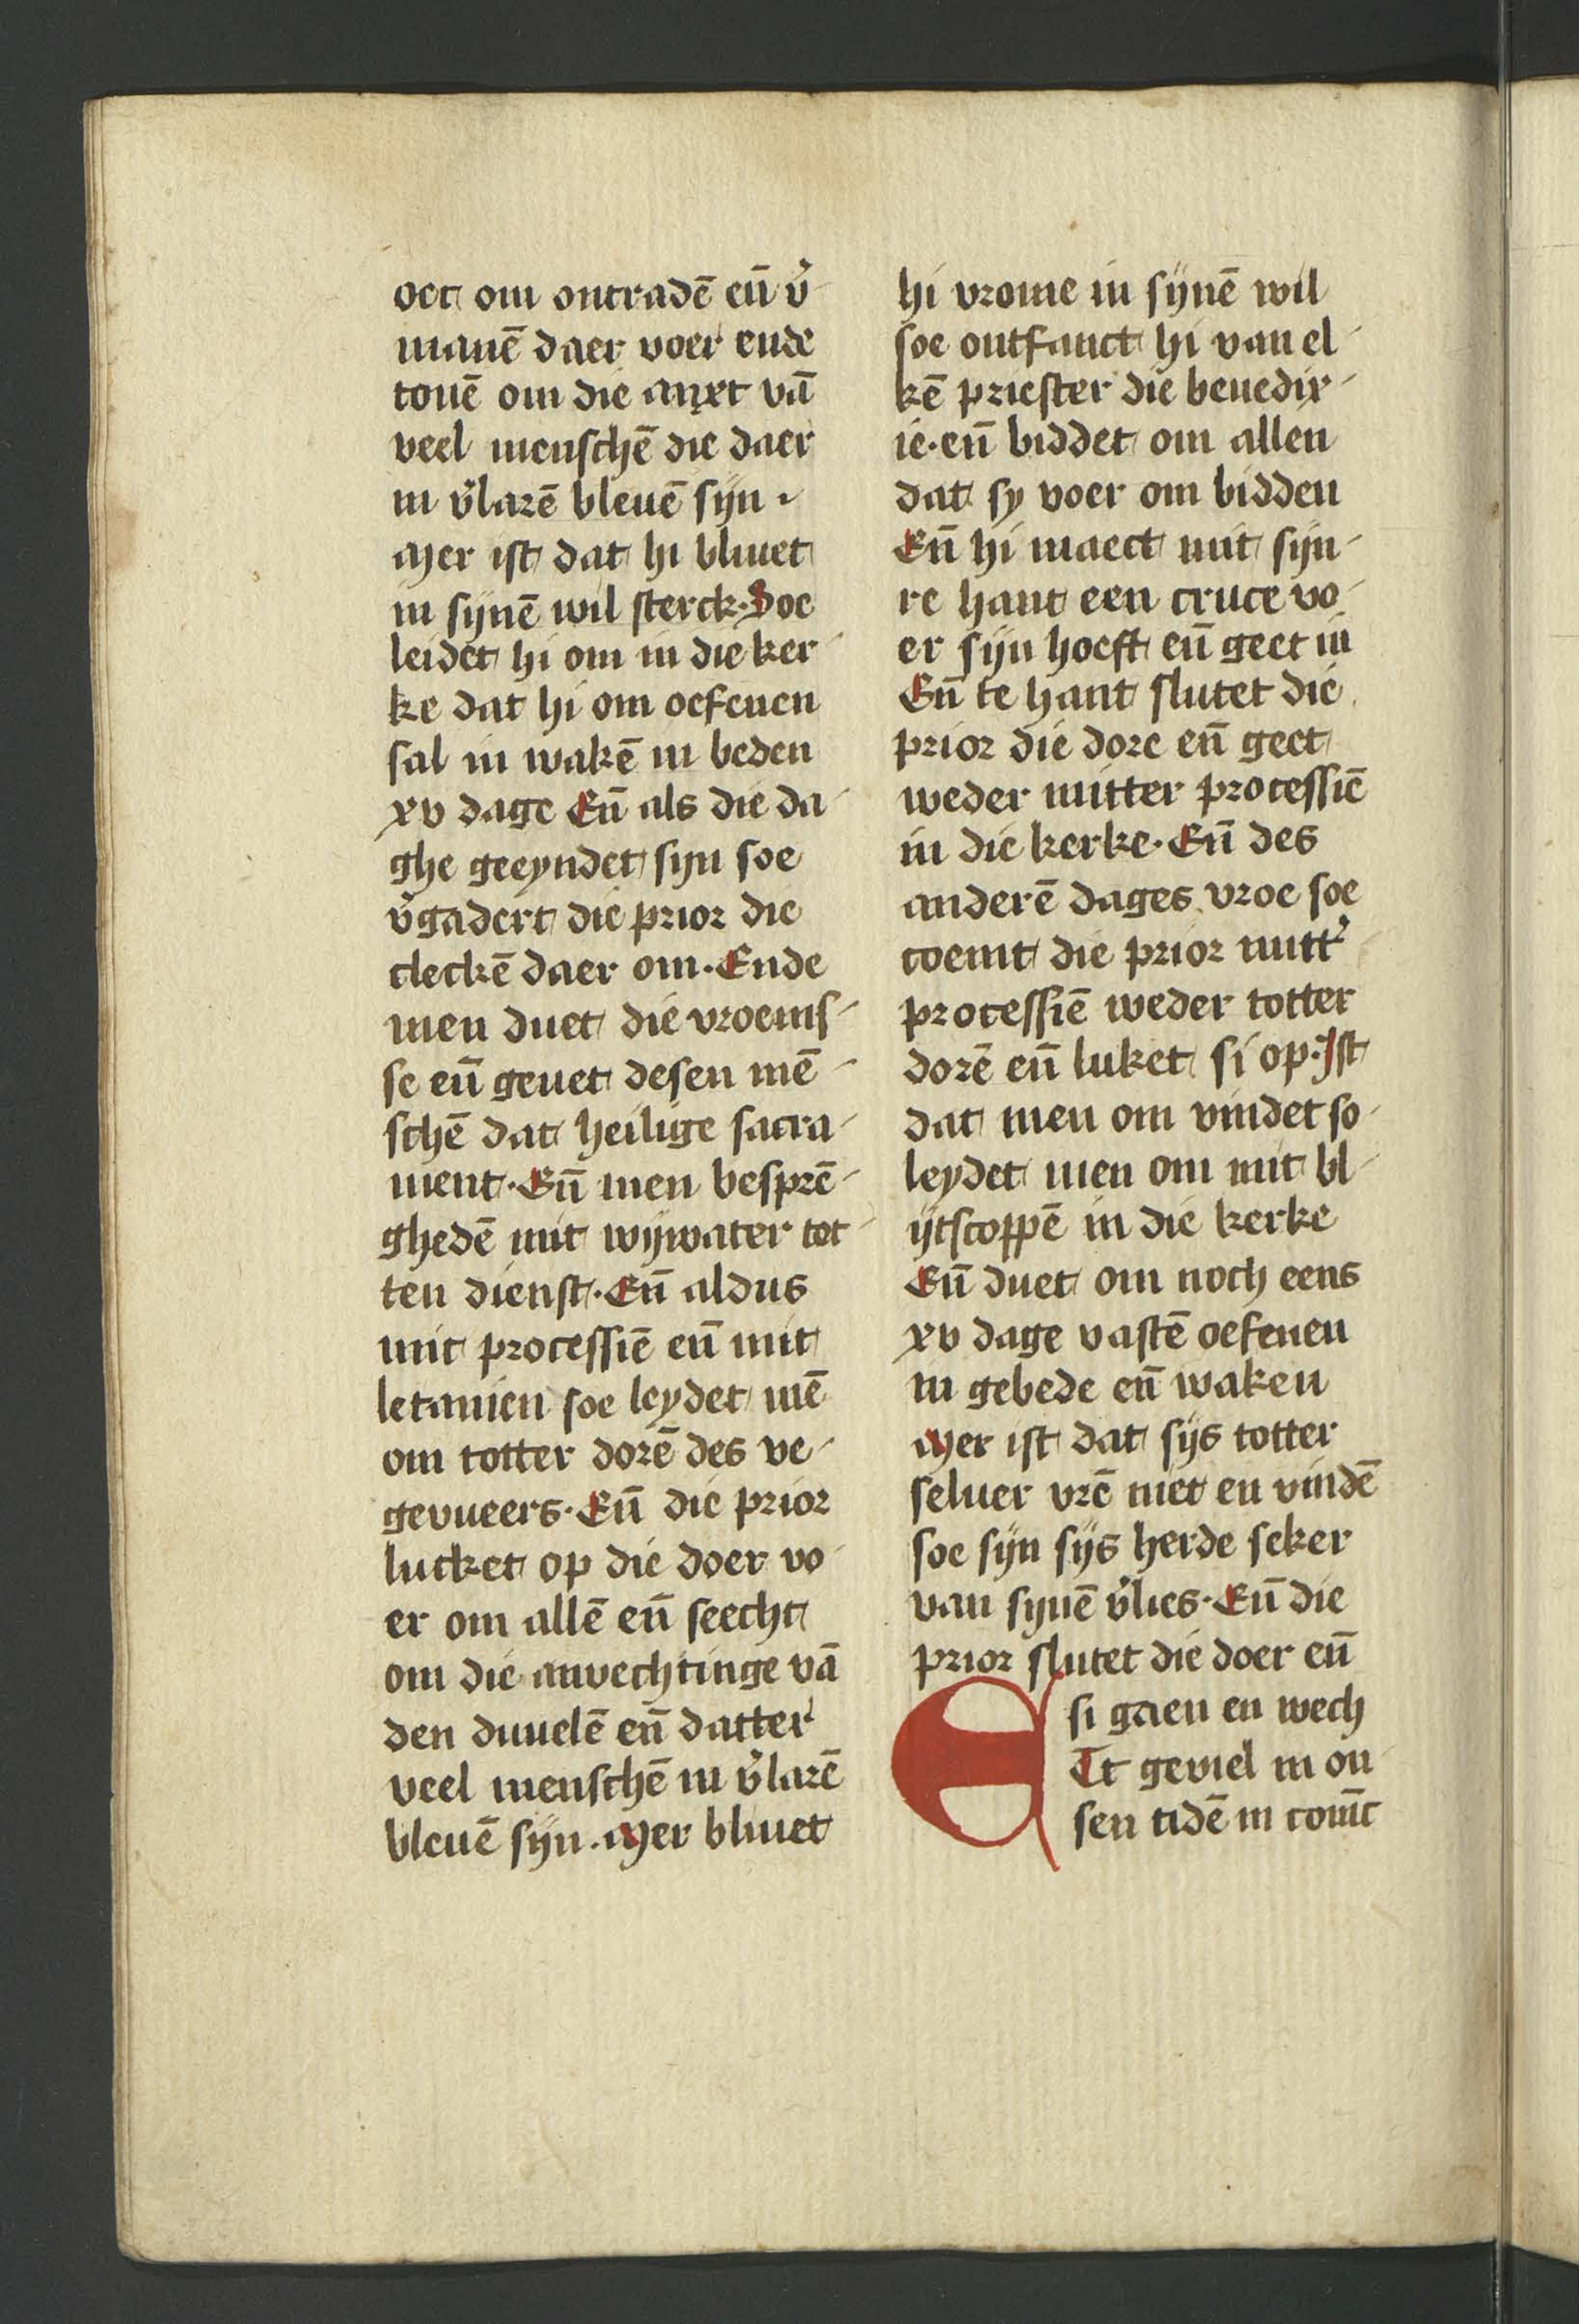 oec om ontradē en̄ v̉
manē daer voer ende
tonē om die anxt vā
veel menschē die daer
in v̉larē bleuē sijn
Mer ist dat hi bliuet
in sijnē wil sterck. Soe
leidet hi om in die ker
ke dat hi om oefenen
sal in wakē in beden
xv dage En̄ als die da
ghe geeyndet sijn soe
v̉gadert die prior die
clerkē daer om. Ende
men duet die vroemis
se en̄ geuet desen mē
schē dat heilige sacra
ment. En̄ men besprē
ghedē mit wijwater tot
ten dienst. En̄ aldus
mit processiē en̄ mit
letanien soe leydet mē
om totter dorē des ve
gevueers. En̄ die prior
lucket op die doer vo
er om allē en̄ seecht
om die anvechtinge vā
den duuelē en̄ datter
veel menschē in v̉larē
bleuē sijn. Mer bliuet
hi vrome in sijnē wil
soe ontfanct hi van el
kē priester die benedix
ie. en̄ biddet om allen
dat sy voer om bidden
En̄ hi maect mit sijn
re hant een cruce vo
er sijn hoeft en̄ geet in
En̄ te hant slutet die
prior die dore en̄ geet
weder mitter processiē
in die kerke. En̄ des
anderē dages vroe soe
coemt die prior mitt̉
processiē weder totter
dorē en̄ luket si op. Ist
dat men om vindet so
leydet men om mit bl
ijtscoppē in die kerke
En̄ duet om noch eens
xv dage vastē oefenen
in gebede en̄ waken
Mer ist dat sijs totter
seluer vrē niet en vindē
soe sijn sijs herde seker
van sijnē v̉lies. En̄ die
prior slutet die doer en̄
si gaen en wech
ETt geviel in on
sen tidē in coninc